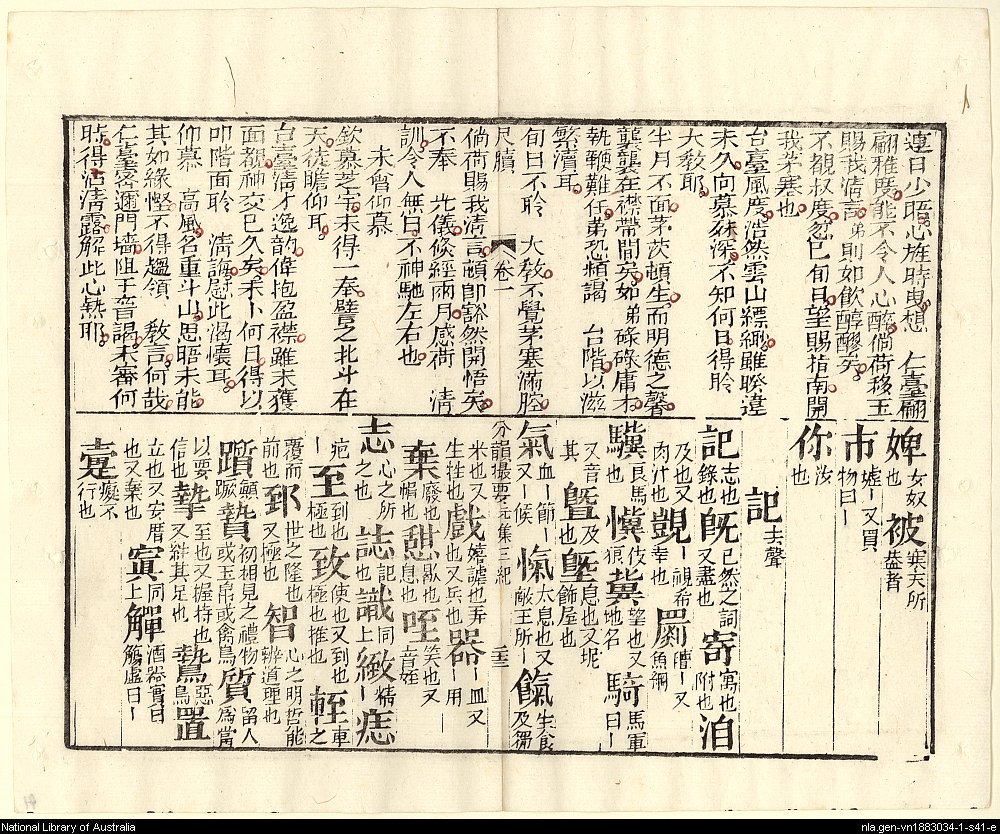 連日少晤忘旌時勇想　仁臺翩
翩雅度能不令人心醉倘荷移玉
賜我清言弟則如飲醇醪矣
不覩叔度忽已旬日望賜指南開
我茅塞也
台臺風度浩然雲山縹緲雖睽違
未久向慕殊深不知何日得聆
大教耶
半月不面茅茨頓生而明德之馨
襲襲在襟帶間矣如弟碌碌庸才
執鞭難任弟恐頻謁　台階以滋
繁瀆耳
旬日不聆　大教不覺茅塞滿腔
尺牘　卷一
倘荷賜我清言頓卽豁然開悟矣
不奉　光儀倏經兩月感荷　清
訓令人無日不神馳左右也
未會仰慕
欽慕芝宇未得一奉譬之北斗在
天徒瞻仰耳
台臺清才逸韵偉抱盈襟雖未獲
面覿神交已久矣未卜何日得以
叩階面聆　清誨慰此渴懷耳
仰慕　高風名重斗山思晤未能
其如緣慳不得趨領　教言何哉
仁臺密邇門墻阻于音謁未審何
時得沾清露解此心熱耶
婢女奴也被棄天所益者
市墟｜又買物曰｜
你汝也
記去聲
記志也錄也旣已然之詞又盡也寄寓也附也泊
及也又肉汁也覬｜覦希幸也罽氊｜又魚網
驥良馬也懻伎也狠冀望也又地名騎馬軍曰｜
又音其曁及也墍息也又坭飾屋也
氣血｜節｜又｜候愾太息也又敵王所｜餼生食及芻
分韻撮要元集三紀　三三
米也又生牲也戲嬉謔也弄也又兵也器｜皿又｜用
棄廢也捐也憇歇也息也咥笑也又音姪
志心之所之也誌記也識同上緻精｜痣
疤｜至到也極也致使也又到也極也推也輊車之
覆而前也郅世之隆也又極也智心之明哲能辦道理也
躓顛｜蹶贄初相見之禮物或玉帛或禽鳥質留人爲當
以要信也摯至也又握持也又絆其足也鷙惡鳥置
立也又安厝也又棄也寘同上觶酒器實曰｜觴虛曰｜
疐礙不行也
National Library of Australia
nla.gen-vn1883034-1-s41-e